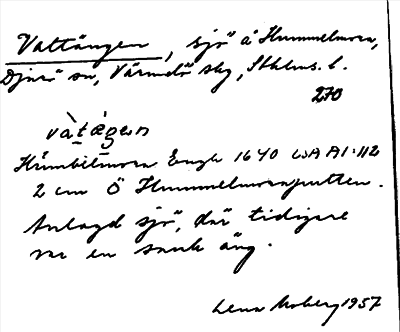 Vattängen, sjö å Hummelmora,
Djurö sn, Värmdö skg, Sthlms. l.
270
và̱tæ̀gen
Humbilmora Engh 1640 LSA A1:112
2 cm Ö Hummelmoraputten.
Anlagd sjö, där tidigare
var en sank äng.
Lena Moberg 1957